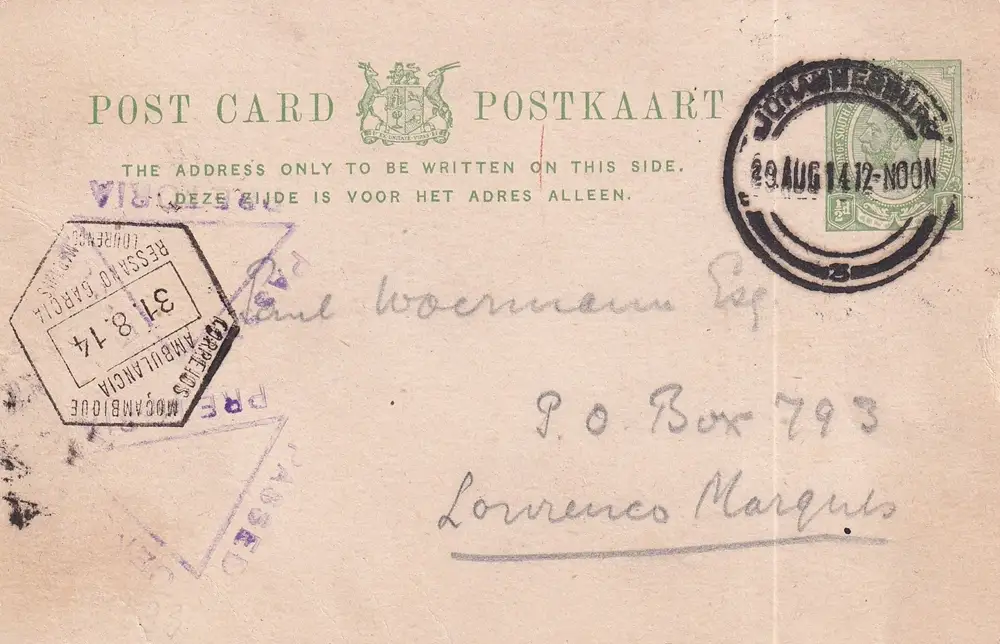 POST CARD POSTKAART
THE ADDRESS ONLY TO BE WRITTEN ON THIS SIDE.
DEZE ZIJDE IS VOOR HET ADRES ALLEEN.
JOHANNESBURG
29 AUG 14 12-NOON
3
½d
PRETORIA
PAS
Paul Woermann Esq
P.O. Box 793
Lourenco Marques
MOÇAMBIQUE
CORREIOS
AMBULANCIA
31.8.14
RESSANO GARCIA
LOURENÇO MARQUES
PRE
PASSED